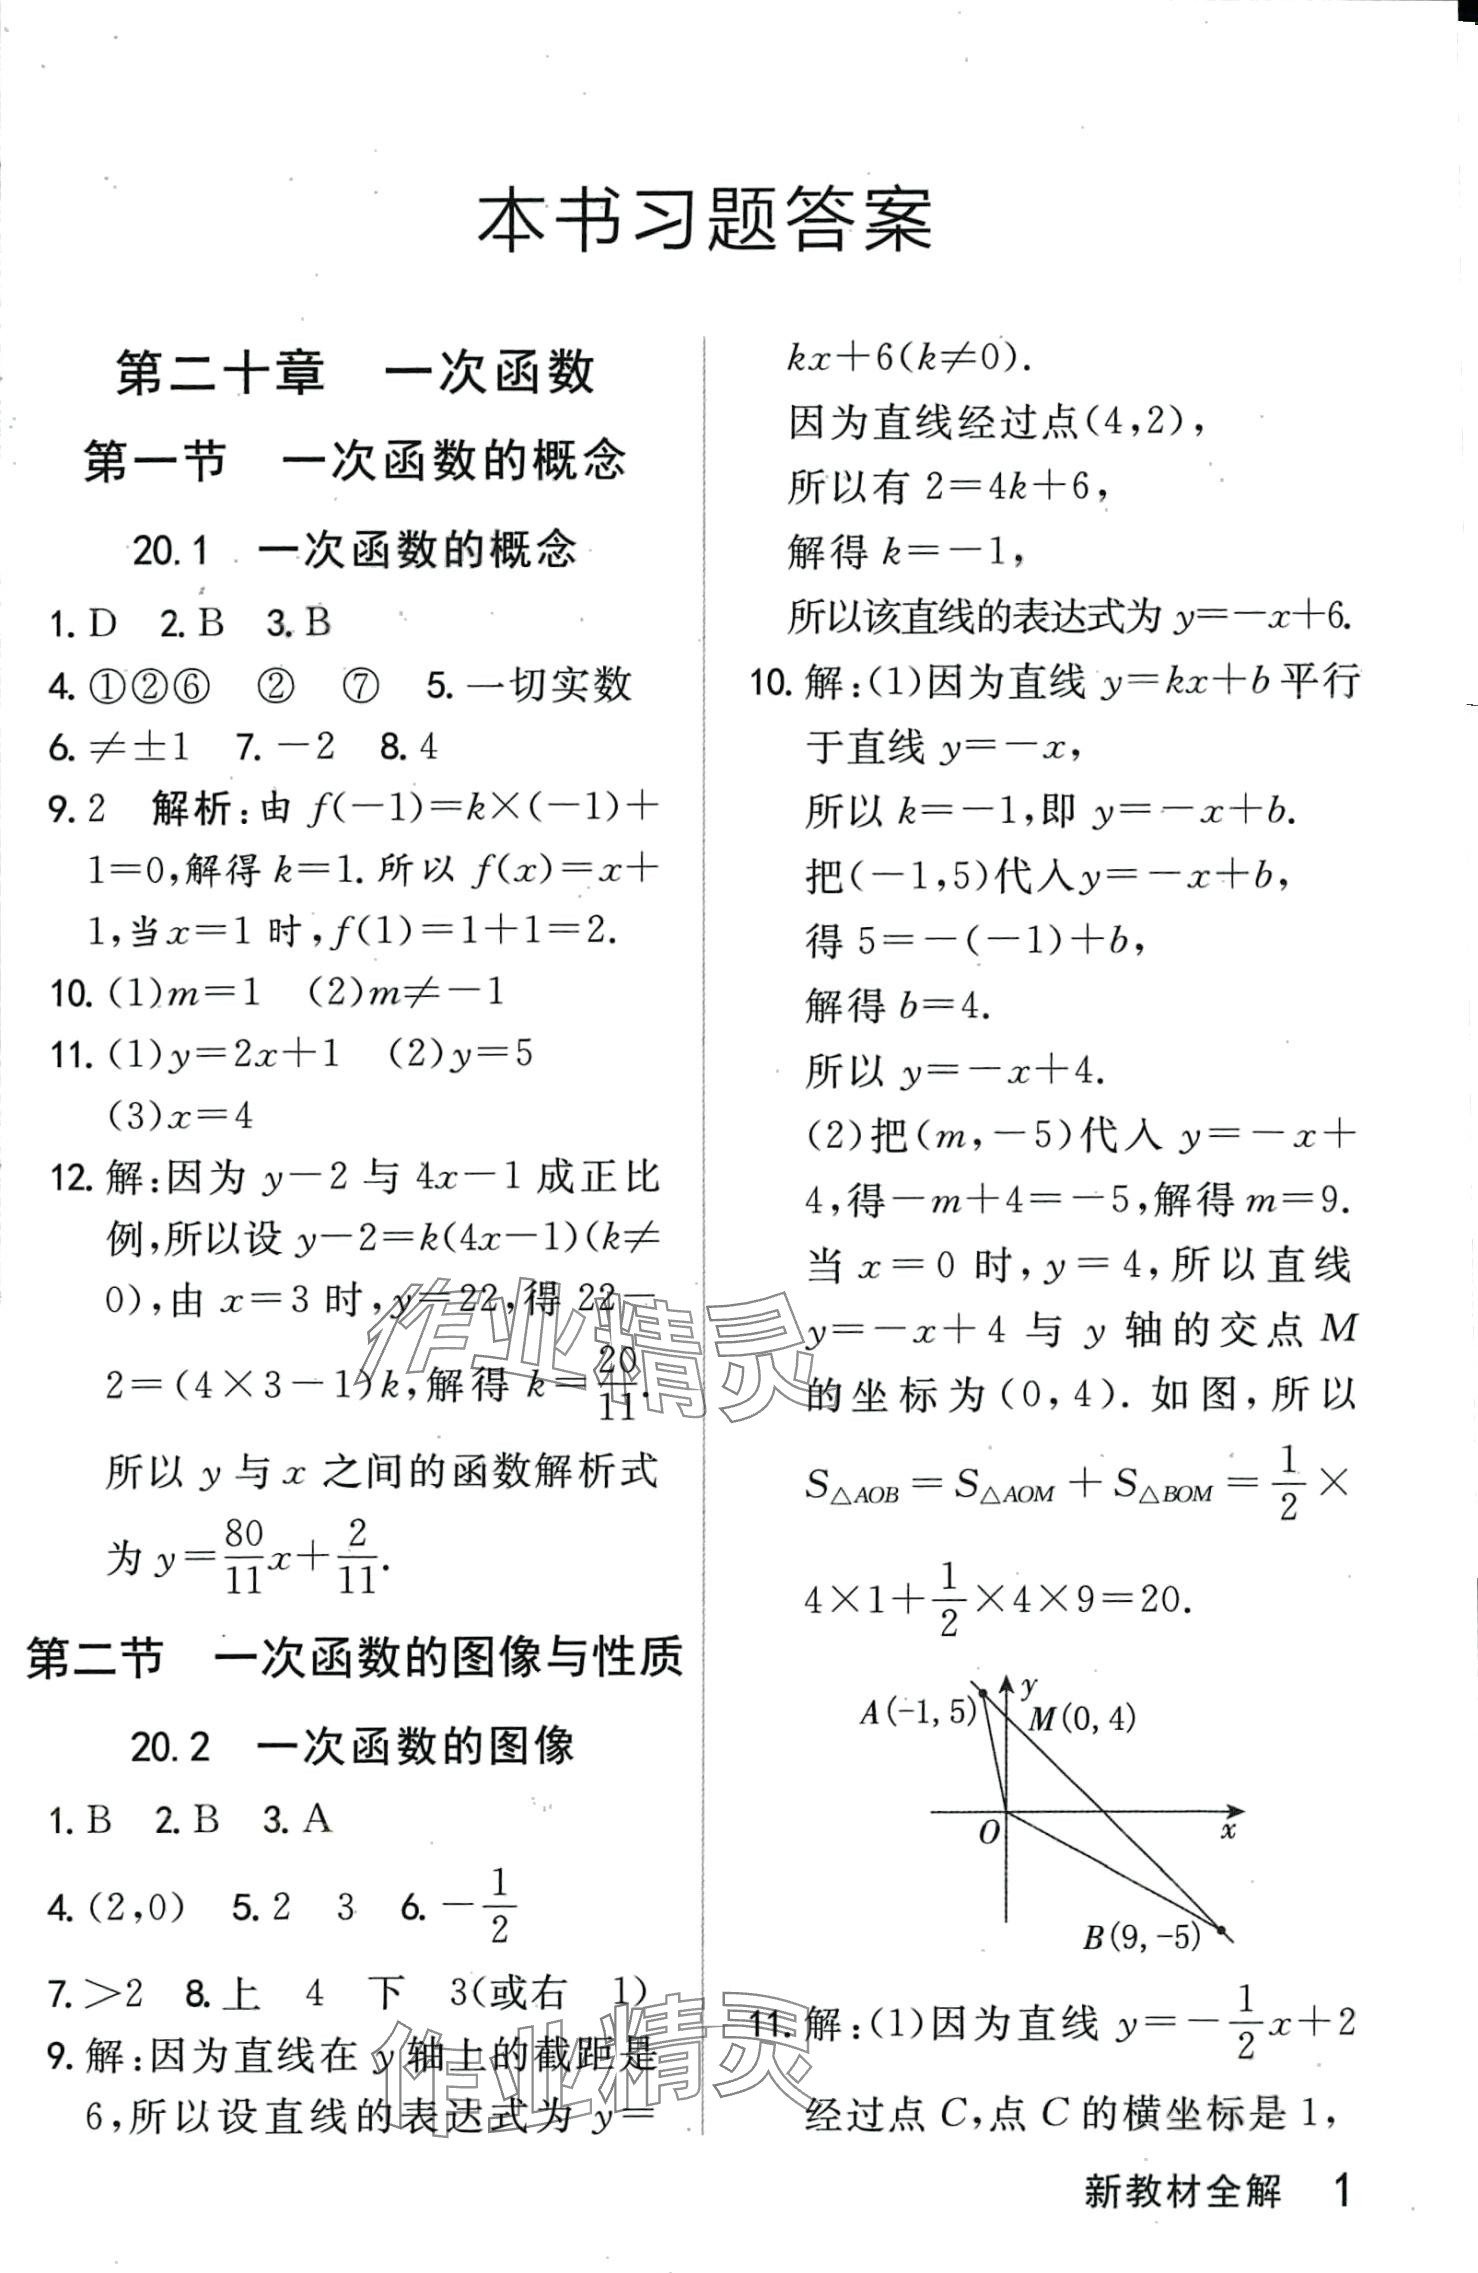 本书习题答案
第二十章　一次函数
第一节　一次函数的概念
20.1　一次函数的概念
1. D　2. B　3. B
4. ①②⑥　②　⑦　5. 一切实数
6. ≠±1　7. －2　8. 4
9. 2　解析：由 f(－1)＝k×(－1)＋
1＝0,解得 k＝1. 所以 f(x)＝x＋
1,当 x＝1 时, f(1)＝1＋1＝2.
10. (1)m＝1　(2)m≠－1
11. (1)y＝2x＋1　(2)y＝5
(3)x＝4
12. 解：因为 y－2 与 4x－1 成正比
例,所以设 y－2＝k(4x－1)(k≠
0),由 x＝3 时, y＝22,得 22－
2＝(4×3－1)k,解得 k＝20/11.
所以 y 与 x 之间的函数解析式
为 y＝80/11x＋2/11.
第二节　一次函数的图像与性质
20.2　一次函数的图像
1. B　2. B　3. A
4. (2,0)　5. 2　3　6. －1/2
7. ＞2　8. 上　4　下　3(或右　1)
9. 解：因为直线在 y 轴上的截距是
6,所以设直线的表达式为 y＝
kx＋6(k≠0).
因为直线经过点(4,2),
所以有 2＝4k＋6,
解得 k＝－1,
所以该直线的表达式为 y＝－x＋6.
10. 解：(1)因为直线 y＝kx＋b 平行
于直线 y＝－x,
所以 k＝－1,即 y＝－x＋b.
把(－1,5)代入y＝－x＋b,
得 5＝－(－1)＋b,
解得 b＝4.
所以 y＝－x＋4.
(2)把(m,－5)代入 y＝－x＋
4,得－m＋4＝－5,解得 m＝9.
当 x＝0 时, y＝4,所以直线
y＝－x＋4 与 y 轴的交点 M
的坐标为(0,4). 如图,所以
S△AOB＝S△AOM＋S△BOM＝1/2×
4×1＋1/2×4×9＝20.
y
A(-1, 5)
M(0, 4)
O
x
B(9, -5)
11. 解：(1)因为直线 y＝－1/2x＋2
经过点 C,点 C 的横坐标是 1,
新教材全解　1
作业精灵
作业精灵